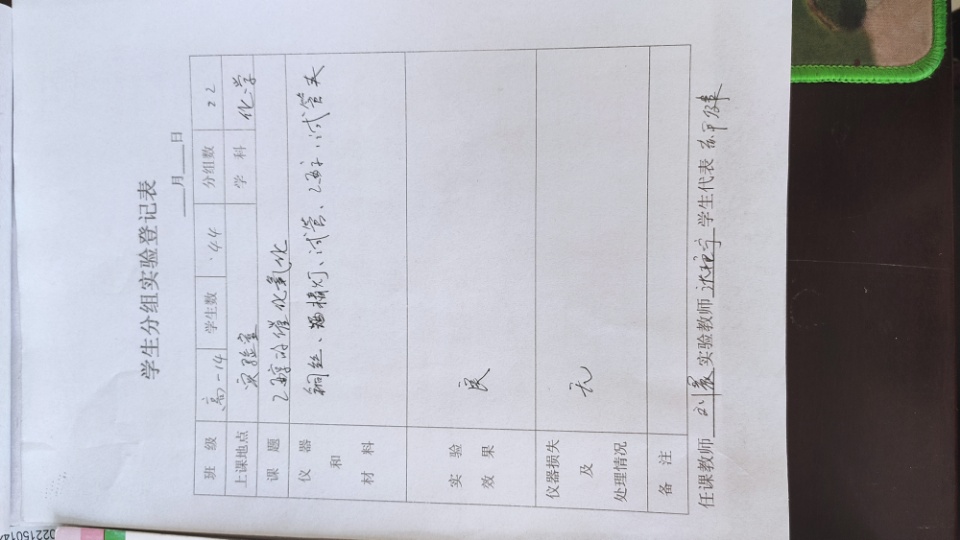 学生分组实验登记表
___月___日
班 级 高一14 学生数 44 分组数 22
上课地点 实验室 学 科 化学
课 题 乙醇的催化氧化
仪 器 和 材 料 铜丝、酒精灯、试管、乙醇、试管夹
实 验 效 果 良
仪器损失 及 处理情况 无
备 注
任课教师 刘 实验教师 学生代表